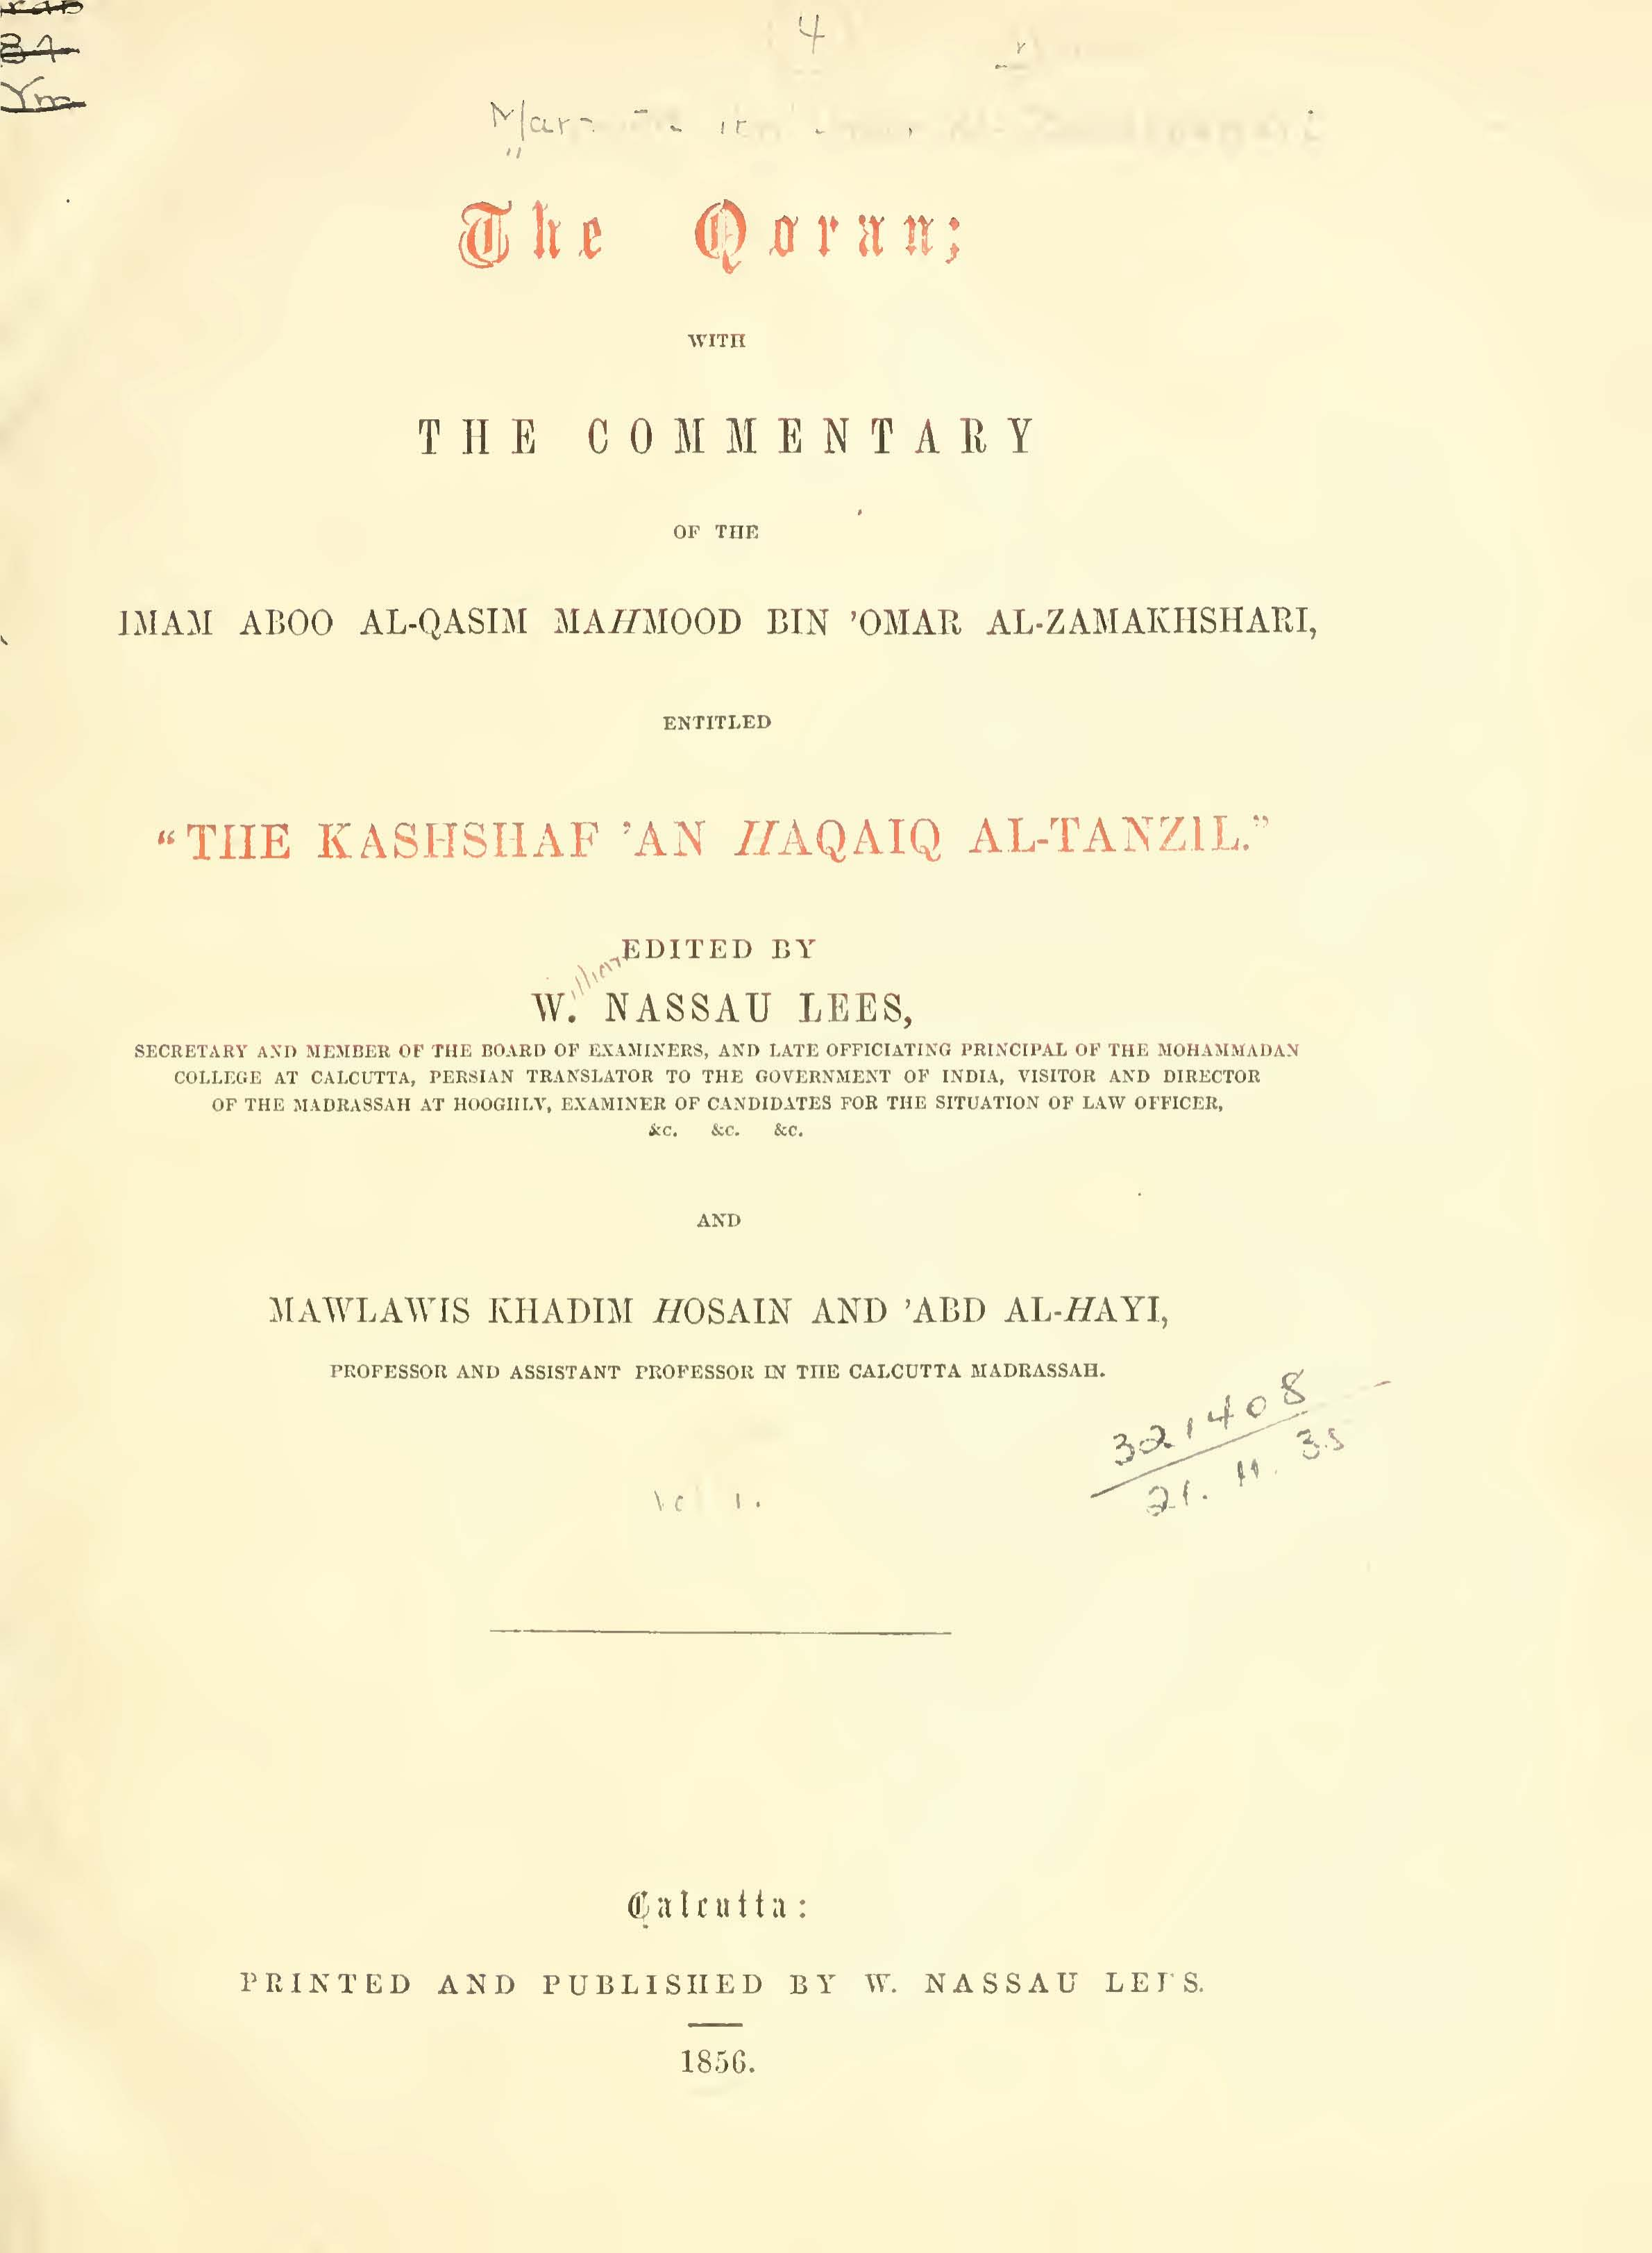 4
The Qoran;
WITH
THE COMMENTARY
OF THE
IMAM ABOO AL-QASIM MAHMOOD BIN ’OMAR AL-ZAMAKHSHARI,
ENTITLED
“THE KASHSHAF ’AN HAQAIQ AL-TANZIL.”
EDITED BY
William
W. NASSAU LEES,
SECRETARY AND MEMBER OF THE BOARD OF EXAMINERS, AND LATE OFFICIATING PRINCIPAL OF THE MOHAMMADAN
COLLEGE AT CALCUTTA, PERSIAN TRANSLATOR TO THE GOVERNMENT OF INDIA, VISITOR AND DIRECTOR
OF THE MADRASSAH AT HOOGHLY, EXAMINER OF CANDIDATES FOR THE SITUATION OF LAW OFFICER,
&c. &c. &c.
AND
MAWLAWIS KHADIM HOSAIN AND ’ABD AL-HAYI,
PROFESSOR AND ASSISTANT PROFESSOR IN THE CALCUTTA MADRASSAH.
321408
21. 11. 35
Calcutta:
PRINTED AND PUBLISHED BY W. NASSAU LEES.
1856.